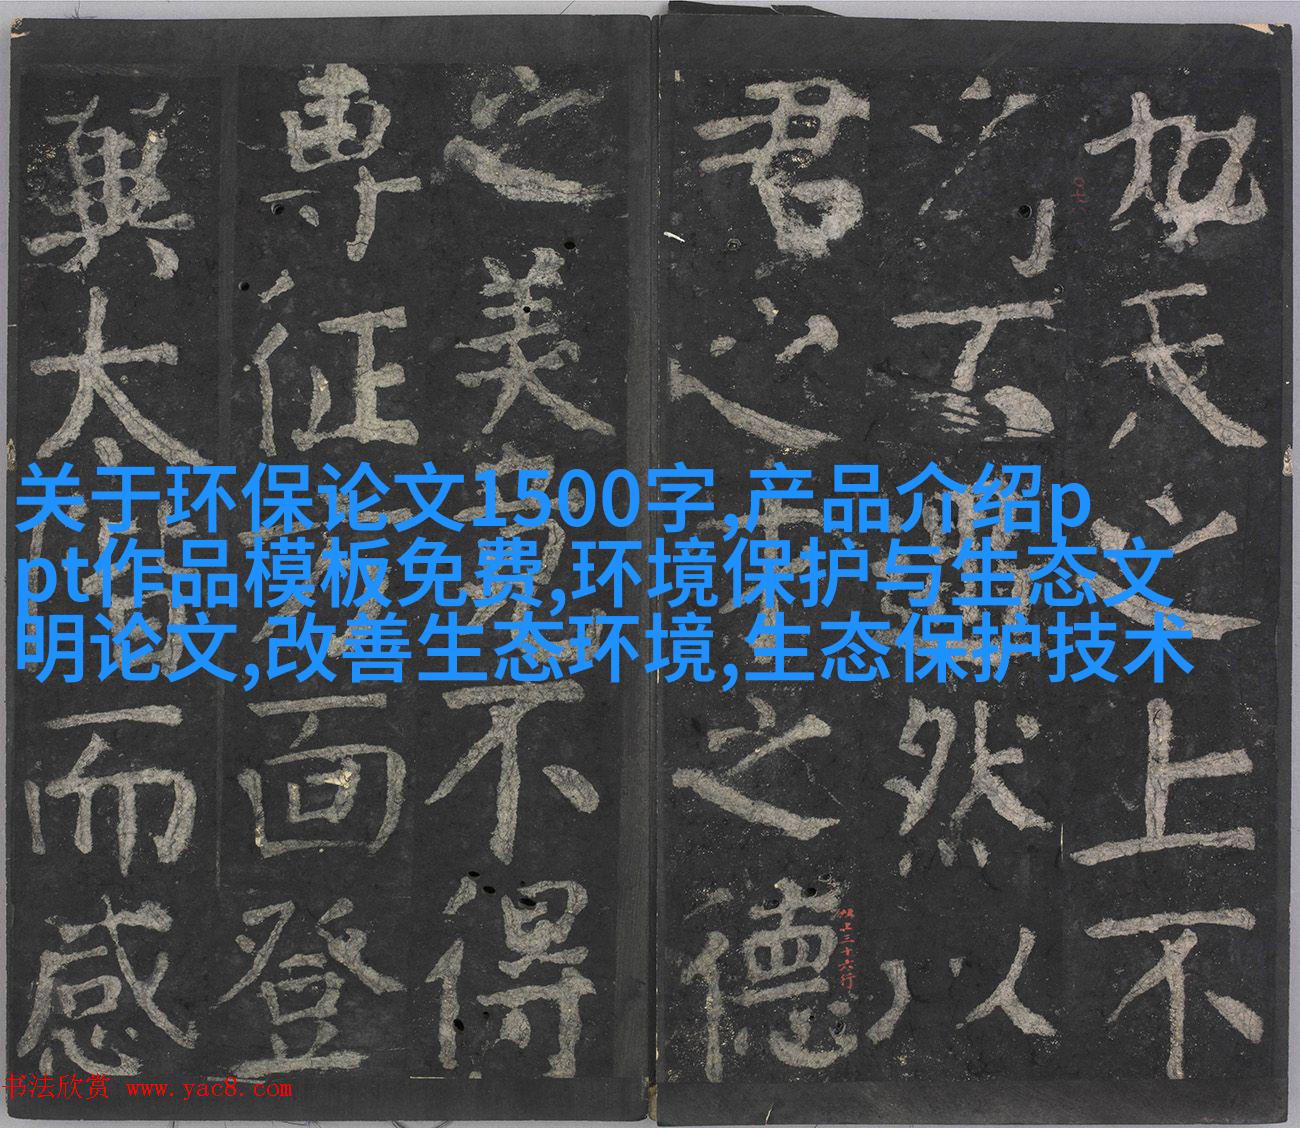 之上不
然以
君之之德
之美不得
專征面登
太而感
关于环保论文1500字,产品介绍p
pt作品模板免费,环境保护与生态文
明论文,改善生态环境,生态保护技术
帖上三十六行
书法欣赏 www.yac8.com